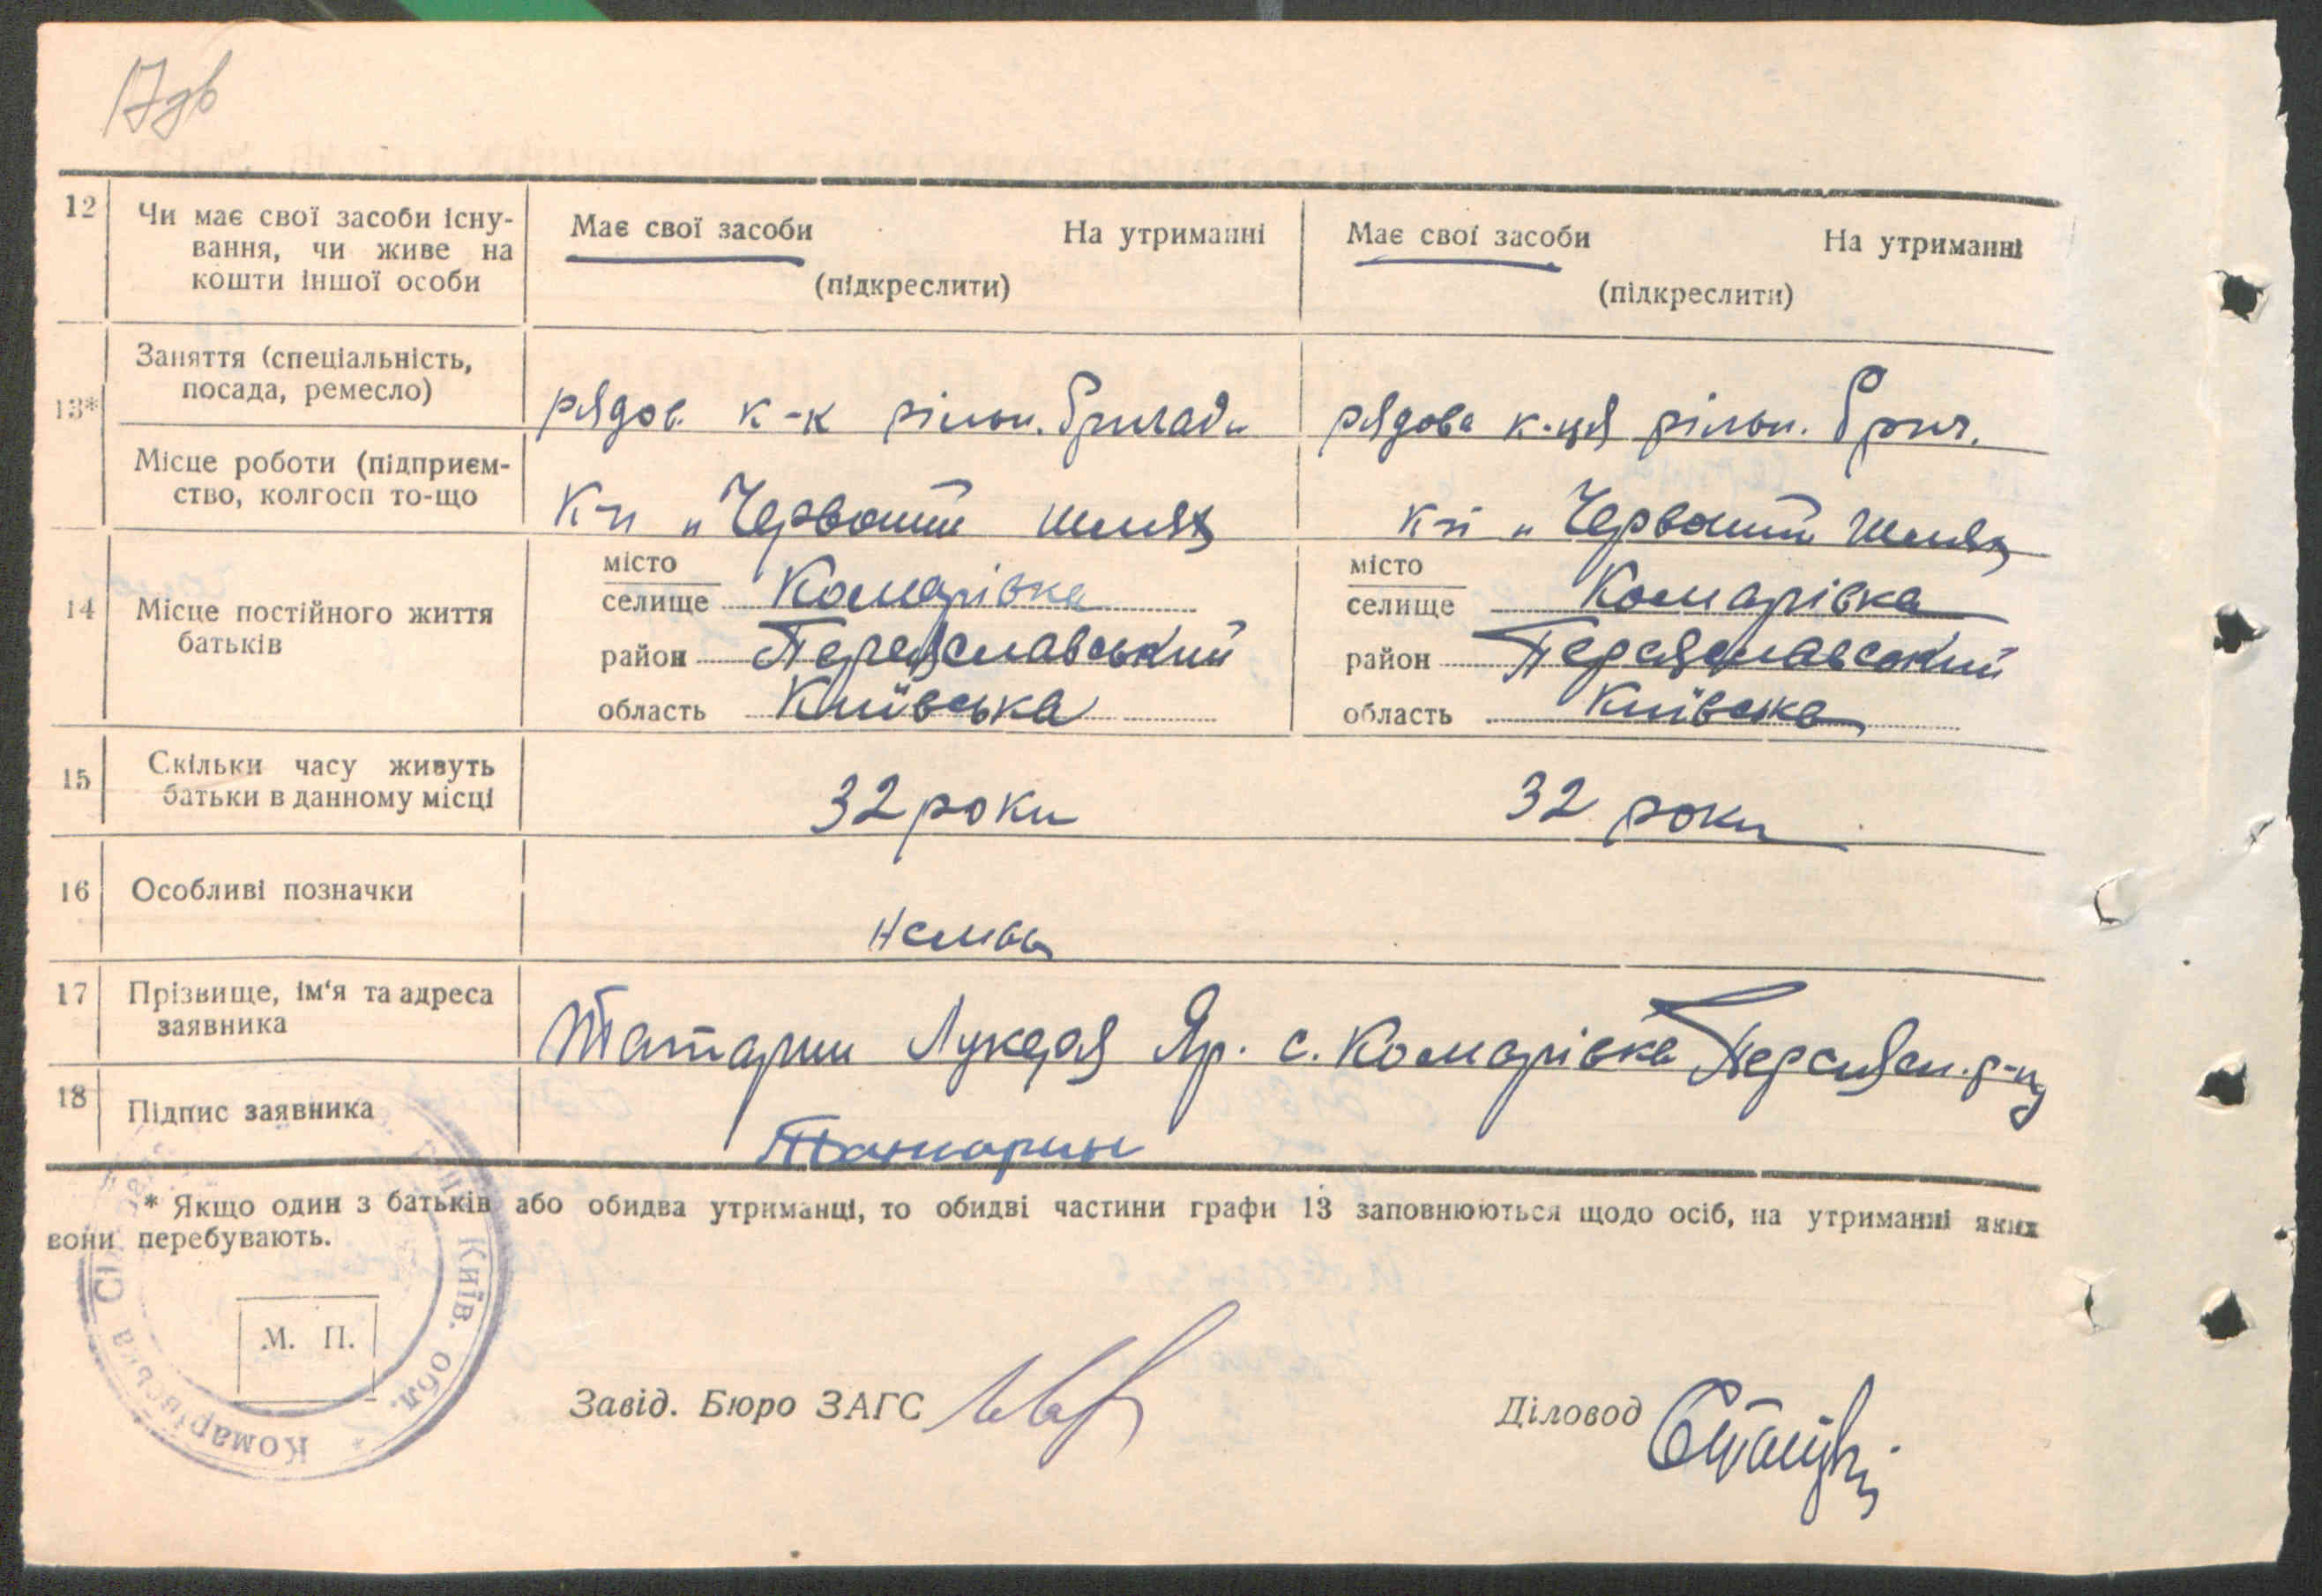 17зв
12 Чи має свої засоби існу-
вання, чи живе на
кошти іншої особи
Має свої засоби На утриманні
(підкреслити)
Має свої засоби На утриманні
(підкреслити)
13* Заняття (спеціальність,
посада, ремесло)
рядов. к-к рільн. бригади
рядова к-ця рільн. бриг.
Місце роботи (підприєм-
ство, колгосп то-що
К-п „Червоний шлях
к-п „Червоний шлях
14 Місце постійного життя
батьків
місто
селище Комарівка
район Переяславський
область Київська
місто
селище Комарівка
район Переяславський
область Київська
15 Скільки часу живуть
батьки в данному місці
32 роки
32 роки
16 Особливі позначки
немає
17 Прізвище, ім'я та адреса
заявника
Татарин Лукерія Яр. с. Комарівка Переясл. р-ну
18 Підпис заявника
Татарин
* Якщо один з батьків або обидва утриманці, то обидві частини графи 13 заповнюються щодо осіб, на утриманні яких
вони перебувають.
Комарівська Сіл Київ. обл.
М. П.
Завід. Бюро ЗАГС
Діловод